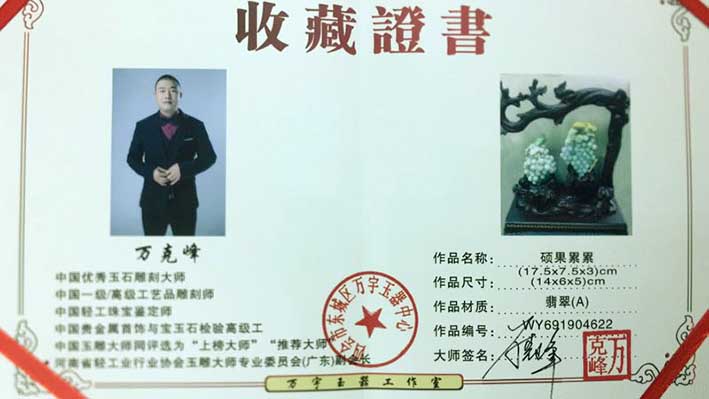 收藏證書
万克峰
中国优秀玉石雕刻大师
中国一级/高级工艺品雕刻师
中国轻工珠宝鉴定师
中国贵金属首饰与宝玉石检验高级工
中国玉雕大师同评选为“上榜大师”“推荐大师”
河南省轻工业行业协会玉雕大师专业委员会(广东)副会长
会市东城区万宇玉器中心
作品名称: 硕果累累
作品尺寸: (17.5x7.5x3)cm
(14x6x5)cm
作品材质: 翡翠(A)
作品编号: WY691904622
大师签名:
万克峰
万宇玉器工作室